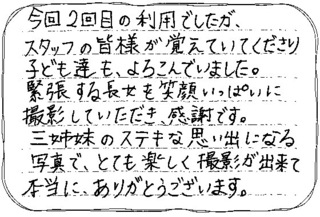 今回2回目の利用でしたが、
スタッフの皆様が覚えていてくださり
子ども達も、よろこんでいました。
緊張する長女も笑顔いっぱいに
撮影していただき、感謝です。
三姉妹のステキな思い出になる
写真で、とても楽しく撮影が出来て
本当に、ありがとうございます。